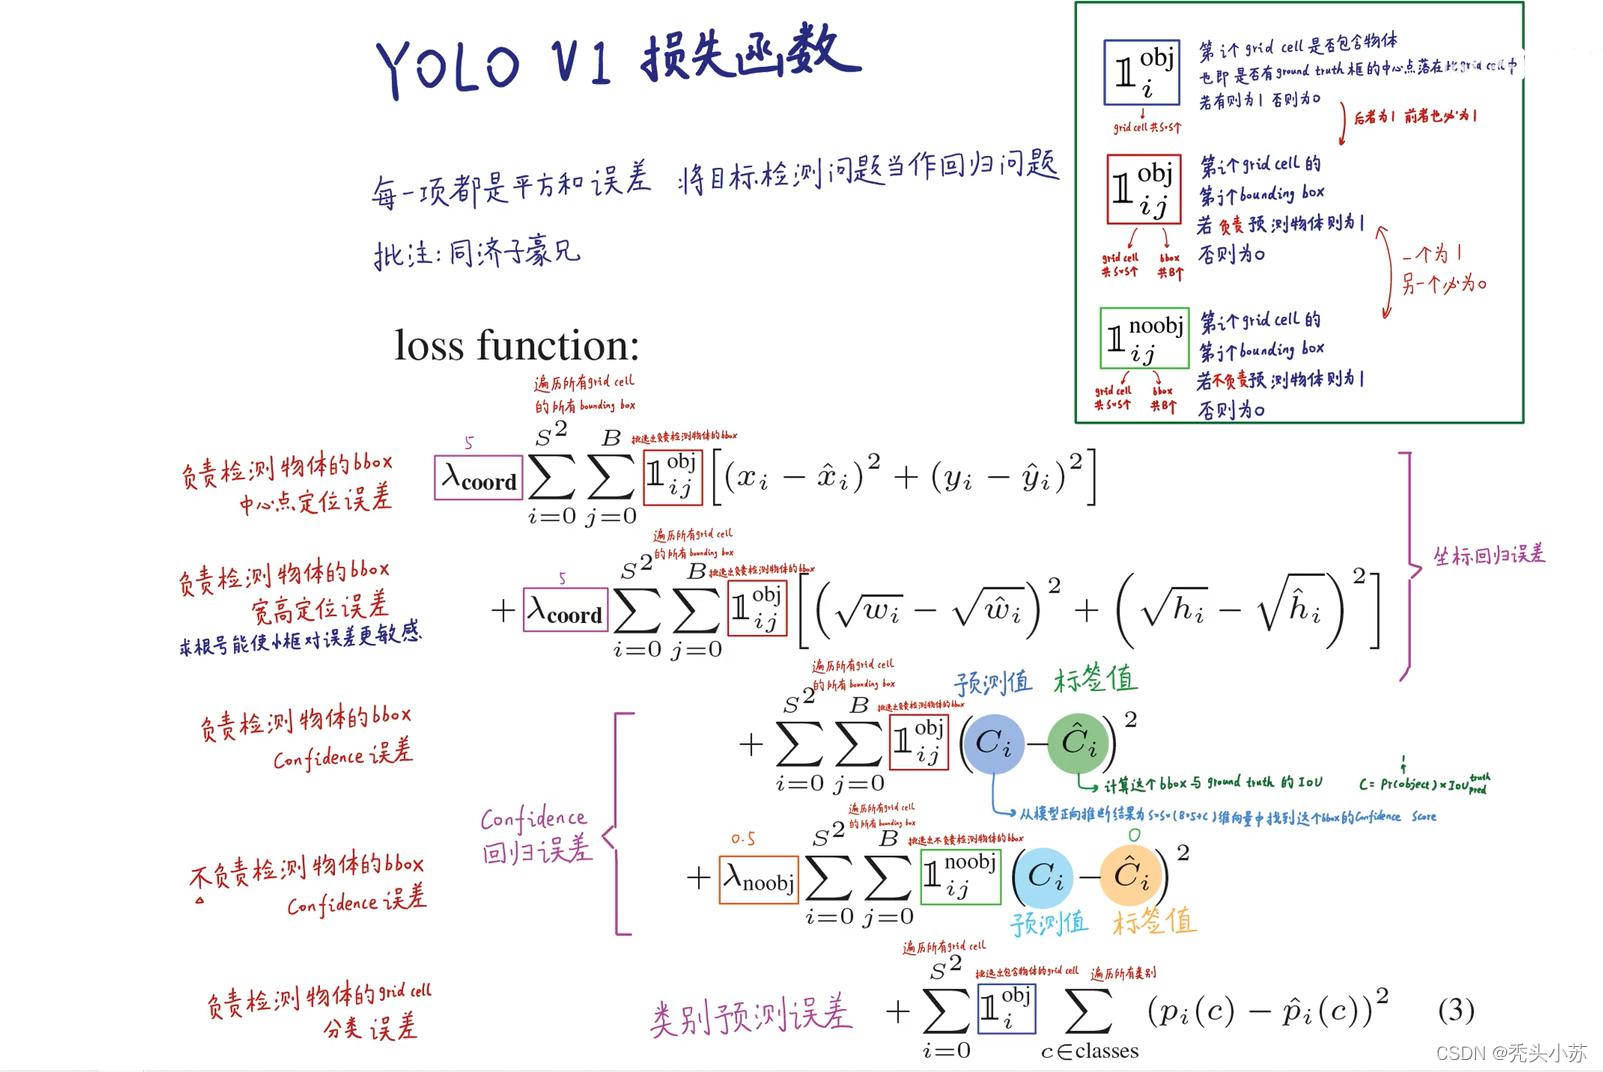 YOLO V1 损失函数
每一项都是平方和误差 将目标检测问题当作回归问题
批注:同济子豪兄
𝟙 obj i
grid cell 共S*S个
第i个grid cell是否包含物体
也即是否有ground truth框的中心点落在此grid cell中
若有则为1 否则为0
后者为1 前者也必为1
𝟙 obj ij
grid cell 共S*S个
bbox 共B个
第i个grid cell的
第j个bounding box
若负责预测物体则为1
否则为0
一个为1
另一个必为0
𝟙 noobj ij
grid cell 共S*S个
bbox 共B个
第i个grid cell的
第j个bounding box
若不负责预测物体则为1
否则为0
loss function:
遍历所有grid cell
的所有bounding box
挑选出负责检测物体的bbox
5
负责检测物体的bbox
中心点定位误差
λcoord ∑_{i=0}^{S^2} ∑_{j=0}^{B} 𝟙_{ij}^{obj} [(x_i − x̂_i)^2 + (y_i − ŷ_i)^2]
遍历所有grid cell
的所有bounding box
挑选出负责检测物体的bbox
5
负责检测物体的bbox
宽高定位误差
求根号能使小框对误差更敏感
+ λcoord ∑_{i=0}^{S^2} ∑_{j=0}^{B} 𝟙_{ij}^{obj} [(√w_i − √ŵ_i)^2 + (√h_i − √ĥ_i)^2]
坐标回归误差
遍历所有grid cell
的所有bounding box
挑选出负责检测物体的bbox
预测值 标签值
负责检测物体的bbox
Confidence误差
+ ∑_{i=0}^{S^2} ∑_{j=0}^{B} 𝟙_{ij}^{obj} (C_i − Ĉ_i)^2
计算这个bbox与ground truth的IoU
1
C = Pr(object) × IoU^{truth}_{pred}
从模型正向推断结果为S*S*(B*5+C)维向量中找到这个bbox的Confidence Score
Confidence
回归误差
遍历所有grid cell
的所有bounding box
挑选出不负责检测物体的bbox
0.5
0
不负责检测物体的bbox
Confidence误差
+ λnoobj ∑_{i=0}^{S^2} ∑_{j=0}^{B} 𝟙_{ij}^{noobj} (C_i − Ĉ_i)^2
预测值 标签值
遍历所有grid cell
挑选出包含物体的grid cell
遍历所有类别
负责检测物体的grid cell
分类误差
类别预测误差
+ ∑_{i=0}^{S^2} 𝟙_{i}^{obj} ∑_{c∈classes} (p_i(c) − p̂_i(c))^2 (3)
CSDN @秃头小苏